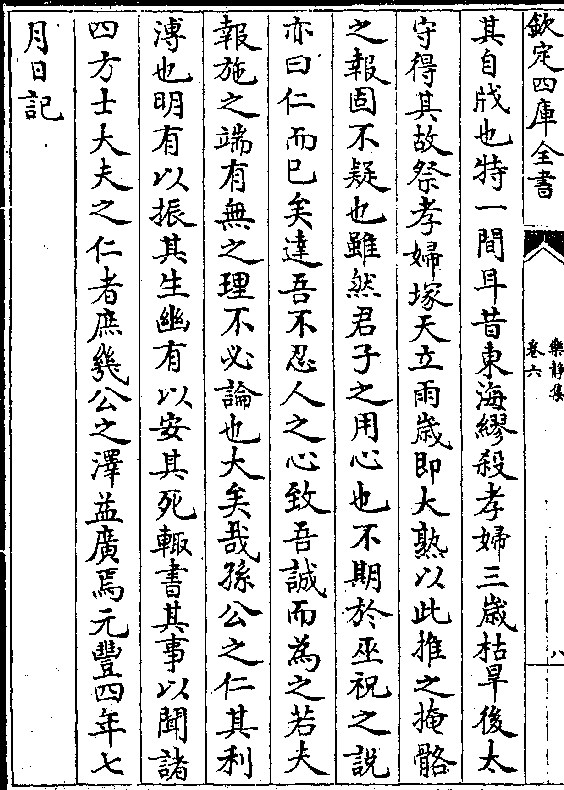 欽定四庫全書
樂靜集
卷六
八
其自戕也特一間耳昔東海繆殺孝婦三歲枯旱後太
守得其故祭孝婦塚天立雨歲即大熟以此推之掩骼
之報固不疑也雖然君子之用心也不期於巫祝之說
亦曰仁而已矣達吾不忍人之心致吾誠而為之若夫
報施之端有無之理不必論也大矣哉孫公之仁其利
溥也明有以振其生幽有以安其死輒書其事以聞諸
四方士大夫之仁者庶幾公之澤益廣焉元豐四年七
月日記